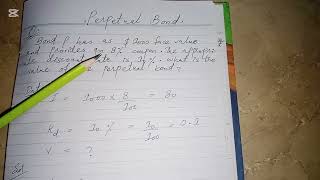 Perpetual Bond
Q:
Bond P has as $1000 face value
and provides an 8% coupon. The appropria
te discount rate is 10%. what is the
value of the perpetual bond?
I = 1000 x 8/100 = 80
Kd = 10% = 10/100 = 0.1
V = ?
Sol